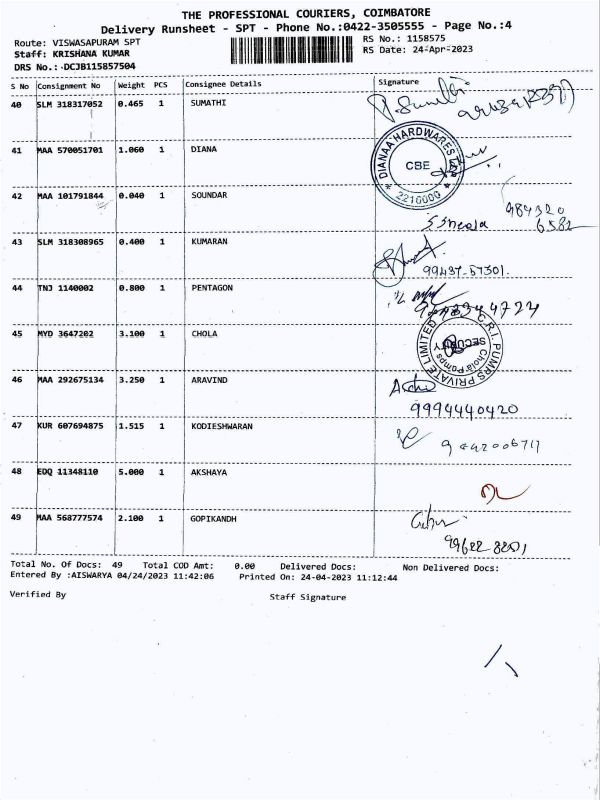 THE PROFESSIONAL COURIERS, COIMBATORE
Delivery Runsheet - SPT - Phone No.:0422-3505555 - Page No.:4
Route: VISWASAPURAM SPT
RS No.: 1158575
Staff: KRISHANA KUMAR
RS Date: 24-Apr-2023
DRS No.:-DCJB115857504
S No Consignment No Weight PCS Consignee Details Signature
40 SLM 318317052 0.465 1 SUMATHI
41 MAA 570051701 1.060 1 DIANA
DIANAA HARDWARES
CBE
2210000
42 MAA 101791844 0.040 1 SOUNDAR
984320
6582
43 SLM 318308965 0.400 1 KUMARAN
99437-57301.
44 TNJ 1140002 0.800 1 PENTAGON
45 MYD 3647202 3.100 1 CHOLA
C.R.I. PUMPS PRIVATE LIMITED
Chola Pumps
SECURITY
46 MAA 292675134 3.250 1 ARAVIND
9994440420
47 KUR 607694875 1.515 1 KODIESHWARAN
9442006711
48 EDQ 11348110 5.000 1 AKSHAYA
49 MAA 568777574 2.100 1 GOPIKANDH
99622 3201
Total No. Of Docs: 49 Total COD Amt: 0.00 Delivered Docs: Non Delivered Docs:
Entered By :AISWARYA 04/24/2023 11:42:06 Printed On: 24-04-2023 11:12:44
Verified By Staff Signature